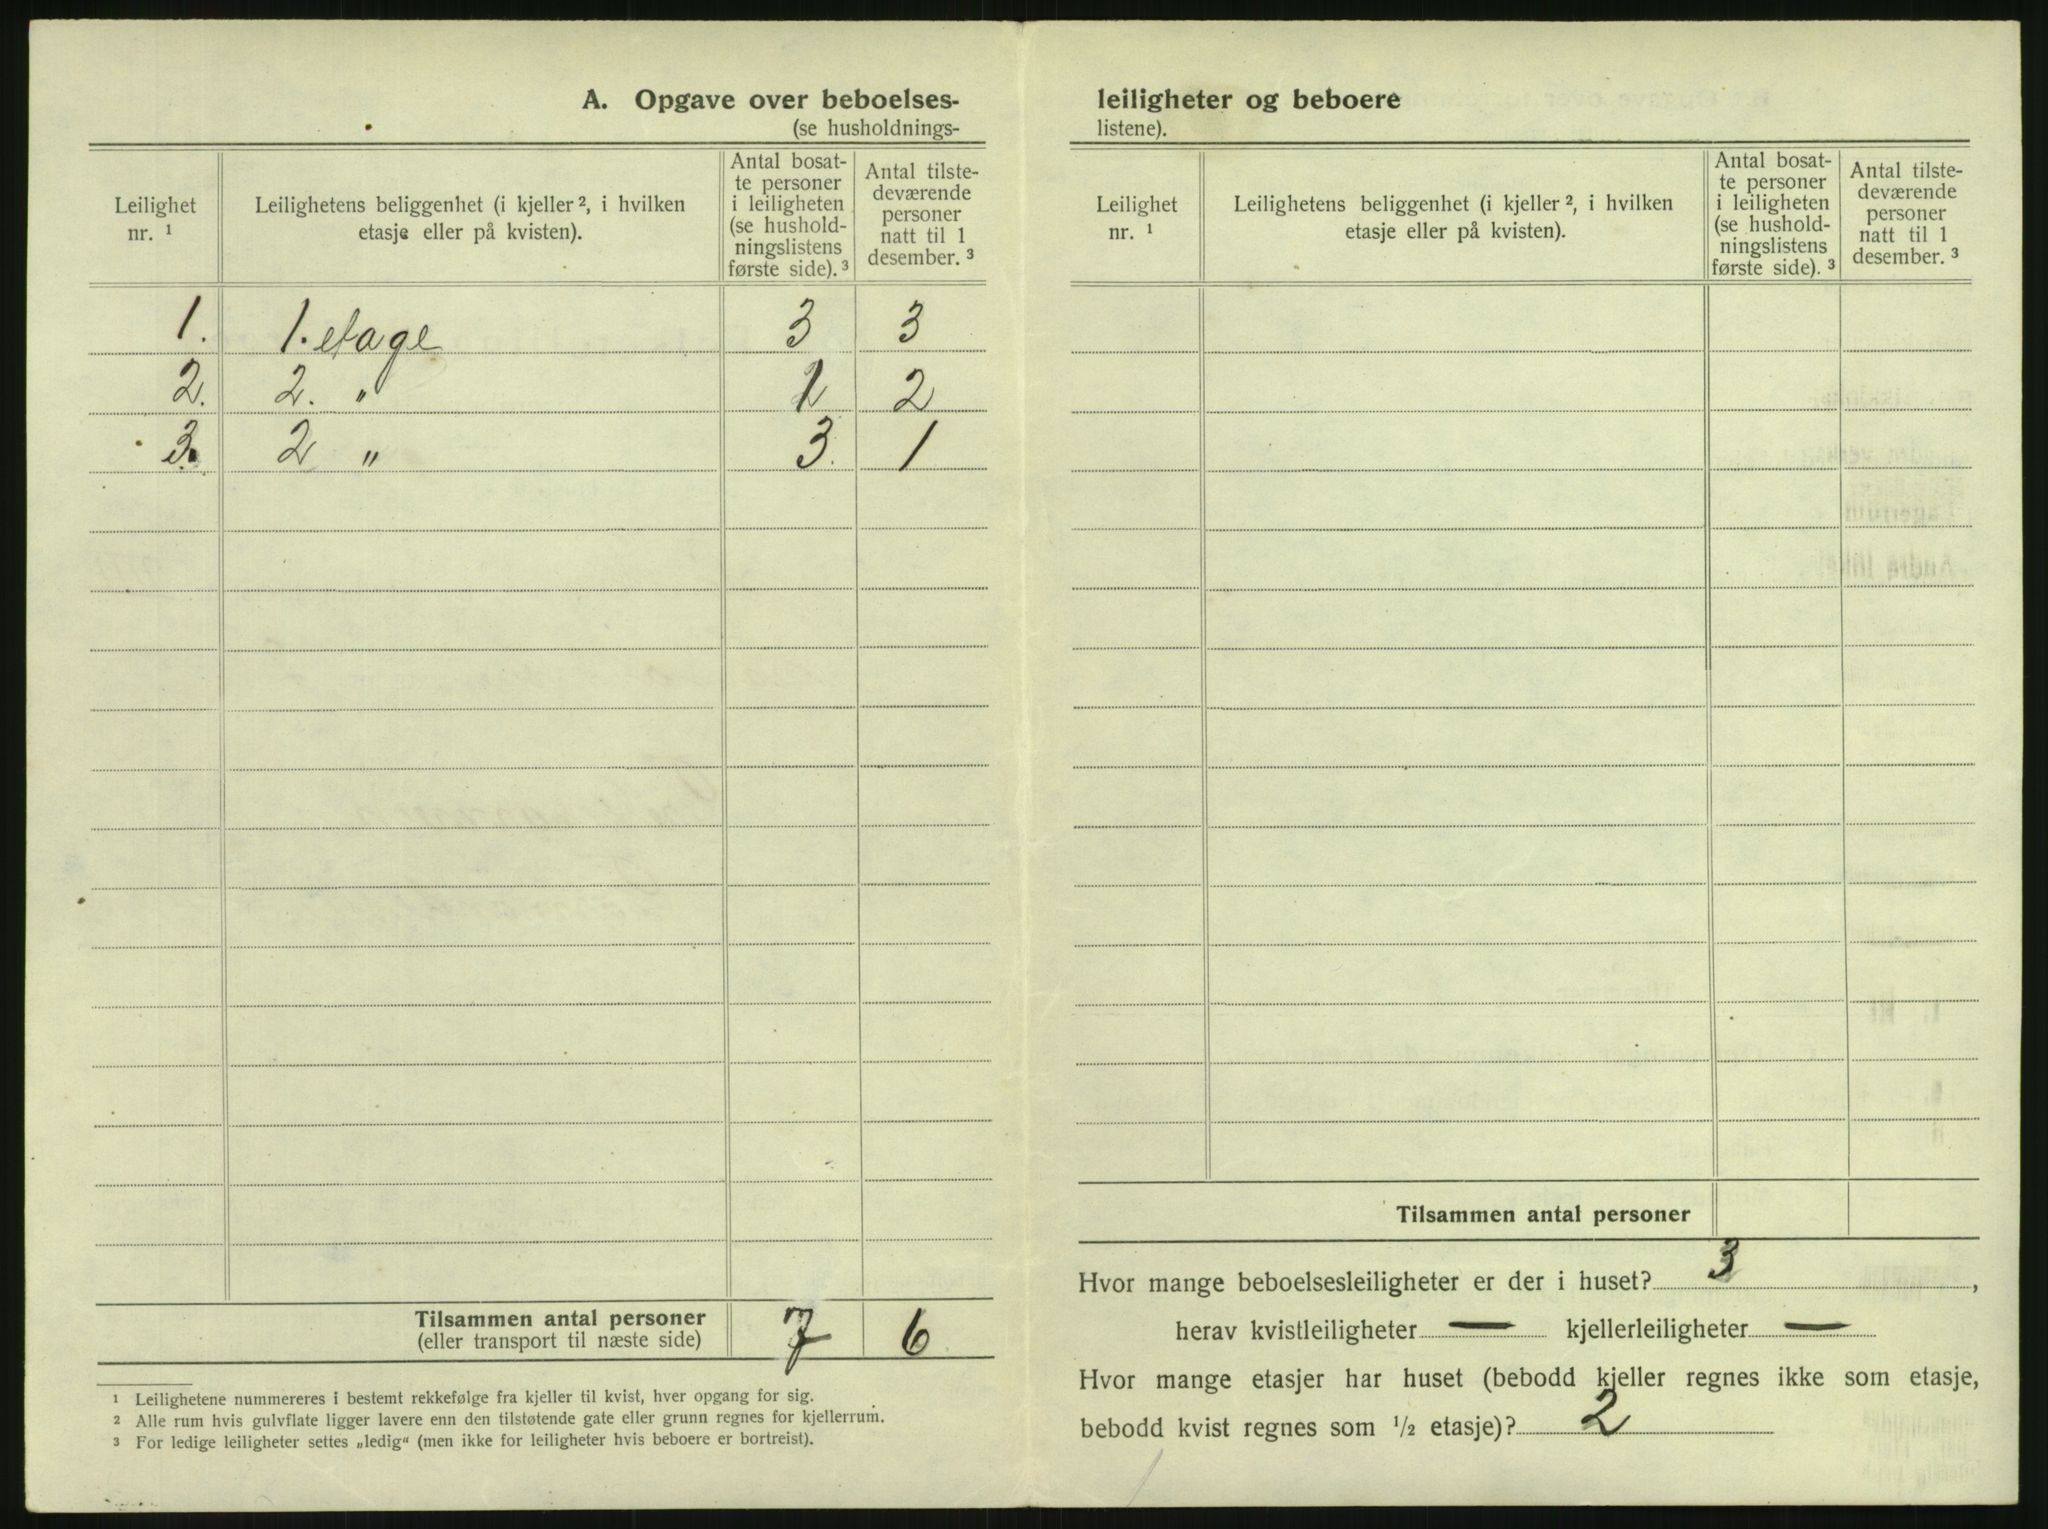 A. Opgave over beboelses-
(se husholdnings-
Leilighet nr. 1
Leilighetens beliggenhet (i kjeller 2, i hvilken etasje eller på kvisten).
Antal bosat-
te personer
i leiligheten
(se hushold-
ningslistens
første side). 3
Antal tilste-
deværende
personer
natt til 1
desember. 3
1. 1. etage 3 3
2. 2. „ 1 2
3. 2 „ 3. 1
Tilsammen antal personer 7 6
(eller transport til næste side)
1 Leilighetene nummereres i bestemt rekkefølge fra kjeller til kvist, hver opgang for sig.
2 Alle rum hvis gulvflate ligger lavere enn den tilstøtende gate eller grunn regnes for kjellerrum.
3 For ledige leiligheter settes „ledig“ (men ikke for leiligheter hvis beboere er bortreist).
leiligheter og beboere
listene).
Leilighet nr. 1
Leilighetens beliggenhet (i kjeller 2, i hvilken etasje eller på kvisten).
Antal bosat-
te personer
i leiligheten
(se hushold-
ningslistens
første side). 3
Antal tilste-
deværende
personer
natt til 1
desember. 3
Tilsammen antal personer
Hvor mange beboelsesleiligheter er der i huset? 3,
herav kvistleiligheter — kjellerleiligheter —
Hvor mange etasjer har huset (bebodd kjeller regnes ikke som etasje,
bebodd kvist regnes som 1/2 etasje)? 2